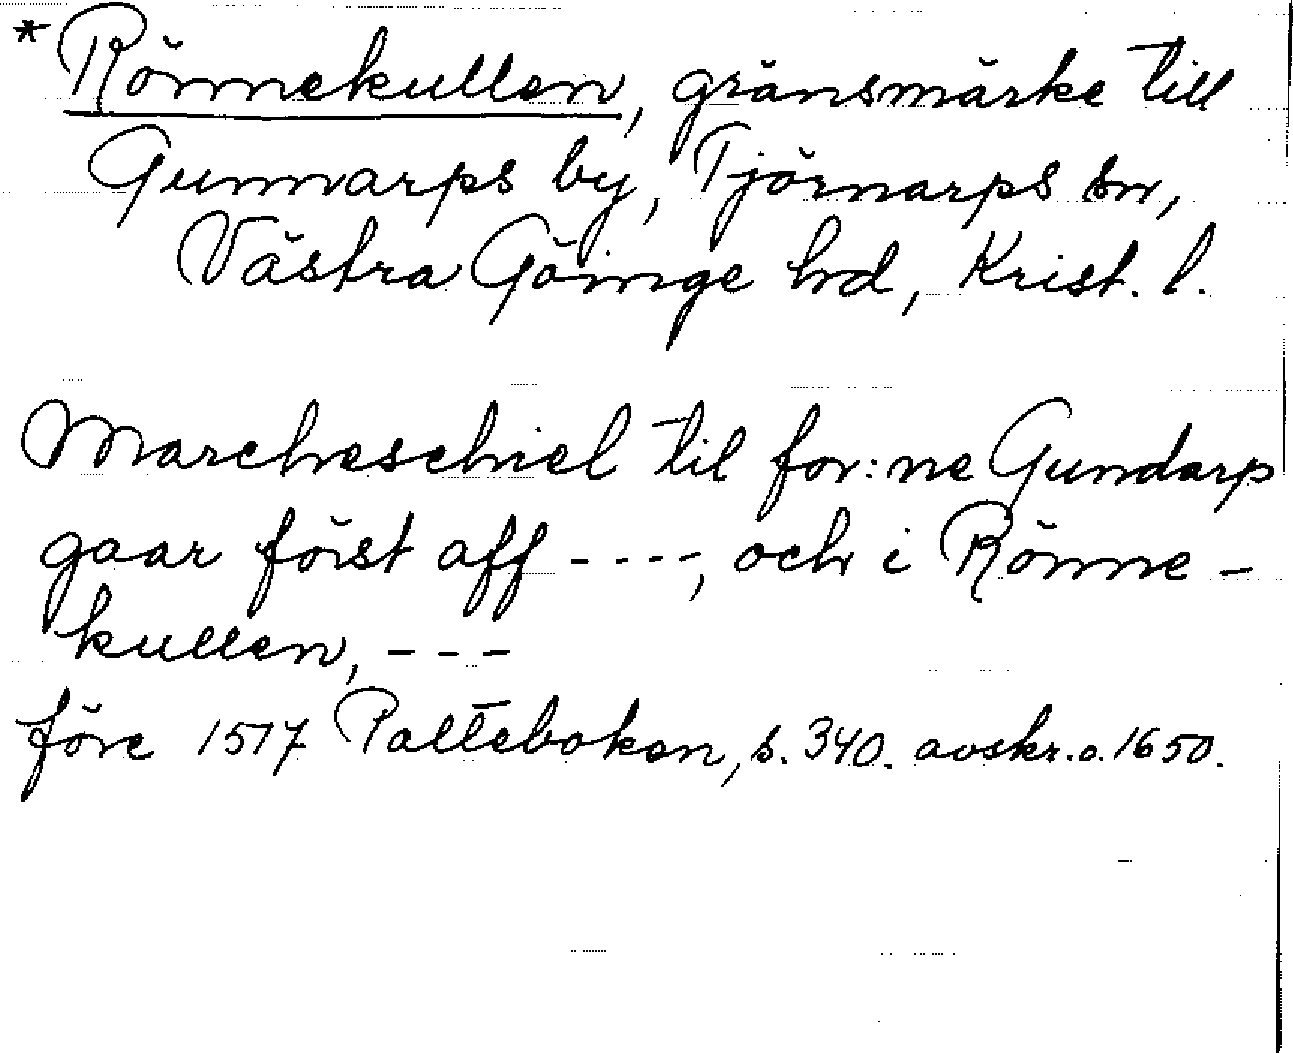 * Rönnekullen, gränsmärke till
Gunnarps by, Tjörnarps sn,
Västra Göinge hd, Krist. l.
Marcheschiel til for:ne Gundarp
gaar först aff ----, och i Rönne-
kullen, ---
före 1517 Palteboken, s. 340. avskr. o. 1650.